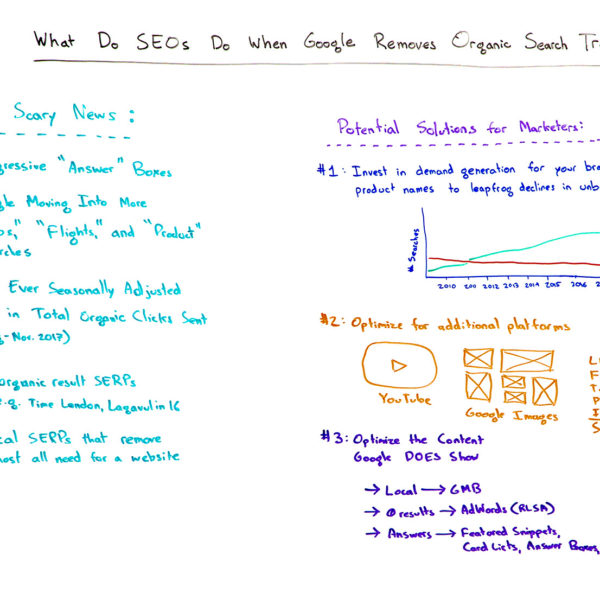 What Do SEOs Do When Google Removes Organic Search
Scary News:
"Answer" Boxes
Moving Into More
"Flights," and "Product"
Ever Seasonally Adjusted
in Total Organic Clicks Sent
Nov. 2017)
organic result SERPs
e.g. Time London, Lagavulin 16
SERPs that remove
all need for a website
Potential Solutions for Marketers:
#1: Invest in demand generation for your
product names to leapfrog declines in
# Searches
2010 2012 2013 2014 2015 2016
#2: Optimize for additional platforms
YouTube
Google Images
#3: Optimize the Content
Google DOES Show
→ Local → GMB
→ 0 results → AdWords (RLSA)
→ Answers → Featured Snippets,
Card Lists, Answer Boxes,